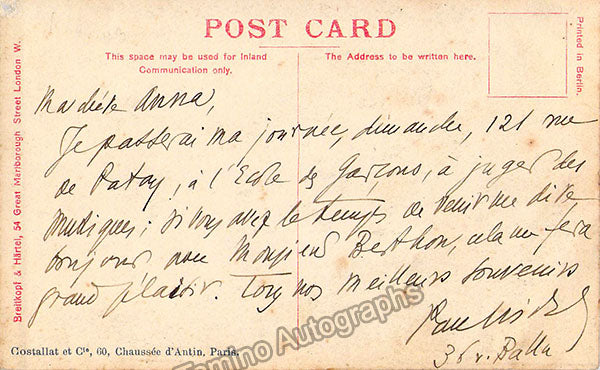 POST CARD
This space may be used for Inland
Communication only.
The Address to be written here.
Printed in Berlin.
Breitkopf & Härtel, 54 Great Marlborough Street London W.
Ma chère Anna,
Je passerai ma journée, dimanche, 121 rue
de Patay, à l'Ecole de Garçons, à juger des
musiques; si vous avez le temps de venir me dire
bonjour avec Monsieur Berthon, cela me fera
grand plaisir. Tous nos meilleurs souvenirs
Paul
36 r. Ballu
Costallat et Cie, 60, Chaussée d'Antin, Paris.
Tamino Autographs